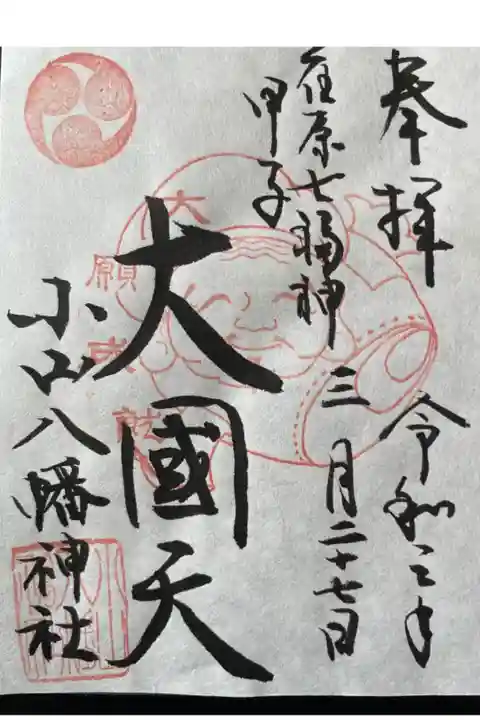 奉拝
令和三年
荏原七福神
甲子
三月二十七日
大國天
小山八幡神社
大願成就